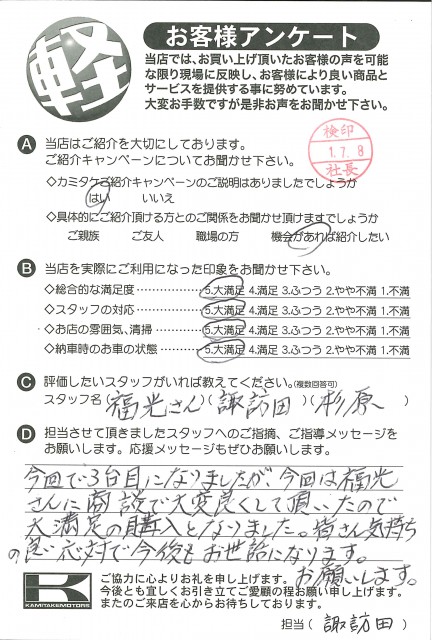 軽
お客様アンケート
当店では、お買い上げ頂いたお客様の声を可能
な限り現場に反映し、お客様により良い商品と
サービスを提供する事に努めています。
大変お手数ですが是非お声をお聞かせ下さい。
A 当店はご紹介を大切にしております。
ご紹介キャンペーンについてお聞かせ下さい。
検印
1.7.8
社長
◇カミタケご紹介キャンペーンのご説明はありましたでしょうか
はい いいえ
◇具体的にご紹介頂ける方とのご関係をお聞かせ頂けますでしょうか
ご親族 ご友人 職場の方 機会があれば紹介したい
B 当店を実際にご利用になった印象をお聞かせ下さい。
◇総合的な満足度 5.大満足 4.満足 3.ふつう 2.やや不満 1.不満
◇スタッフの対応 5.大満足 4.満足 3.ふつう 2.やや不満 1.不満
◇お店の雰囲気、清掃 5.大満足 4.満足 3.ふつう 2.やや不満 1.不満
◇納車時のお車の状態 5.大満足 4.満足 3.ふつう 2.やや不満 1.不満
C 評価したいスタッフがいれば教えてください。(複数回答可)
スタッフ名(福光さん)(諏訪田)(杉原)
D 担当させて頂きましたスタッフへのご指摘、ご指導メッセージを
お願いします。応援メッセージもぜひお願いします。
今回で3台目になりましたが、今回は福光
さんに商談で大変良くして頂いたので
大満足の購入となりました。皆さん気持ち
の良い応対で今後もお世話になります。
お願いします。
K
KAMITAKE MOTORS
ご協力に心よりお礼を申し上げます。
今後とも宜しくお引き立てご愛顧の程お願い申し上げます。
またのご来店を心からお待ちしております。
担当(諏訪田)